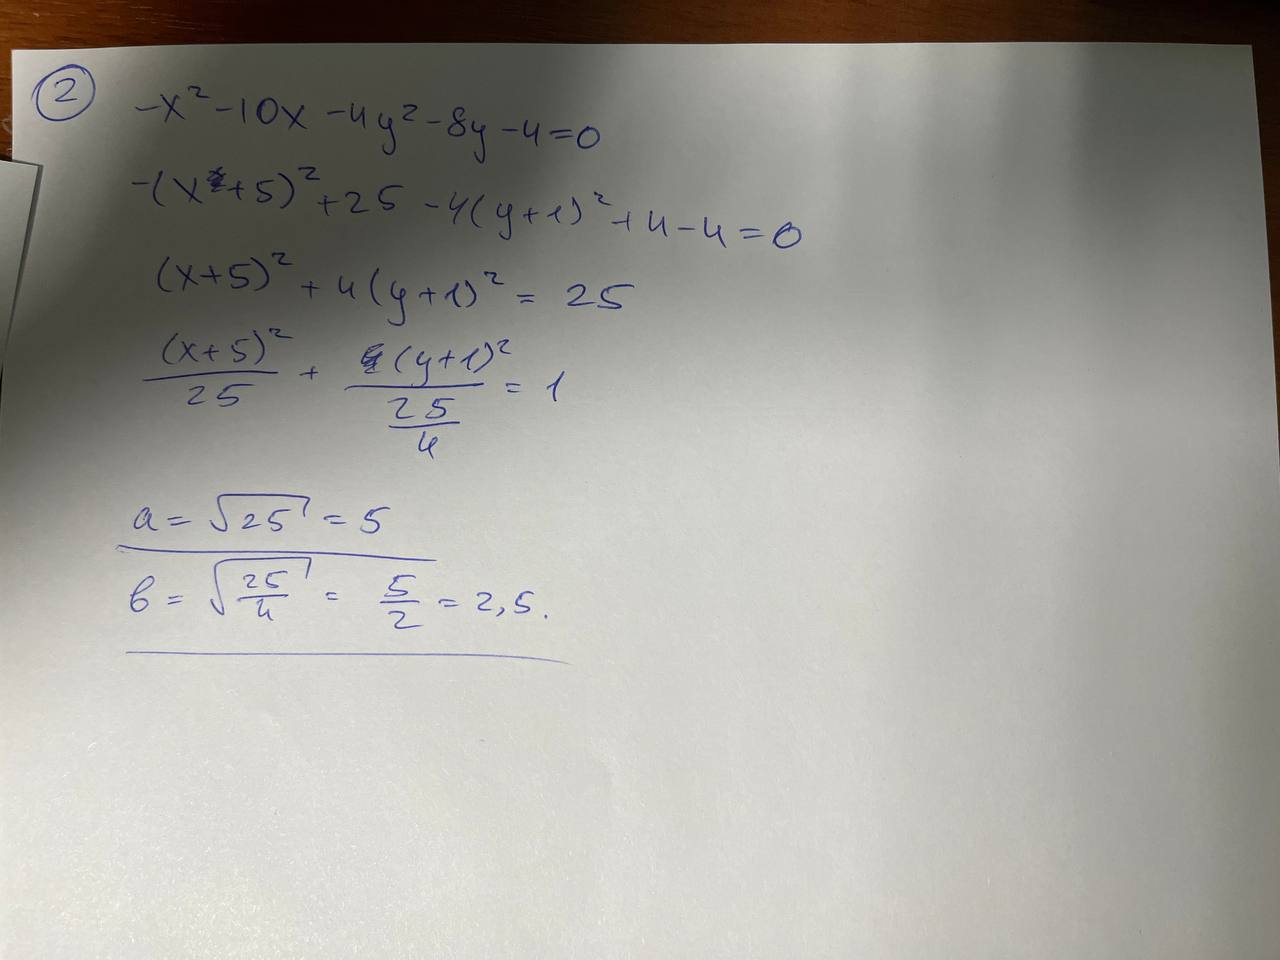 2
-x² - 10x - 4y² - 8y - 4 = 0
-(x + 5)² + 25 - 4(y + 1)² + 4 - 4 = 0
(x + 5)² + 4(y + 1)² = 25
(x + 5)² / 25 + (y + 1)² / (25/4) = 1
a = √25 = 5
b = √(25/4) = 5/2 = 2,5.